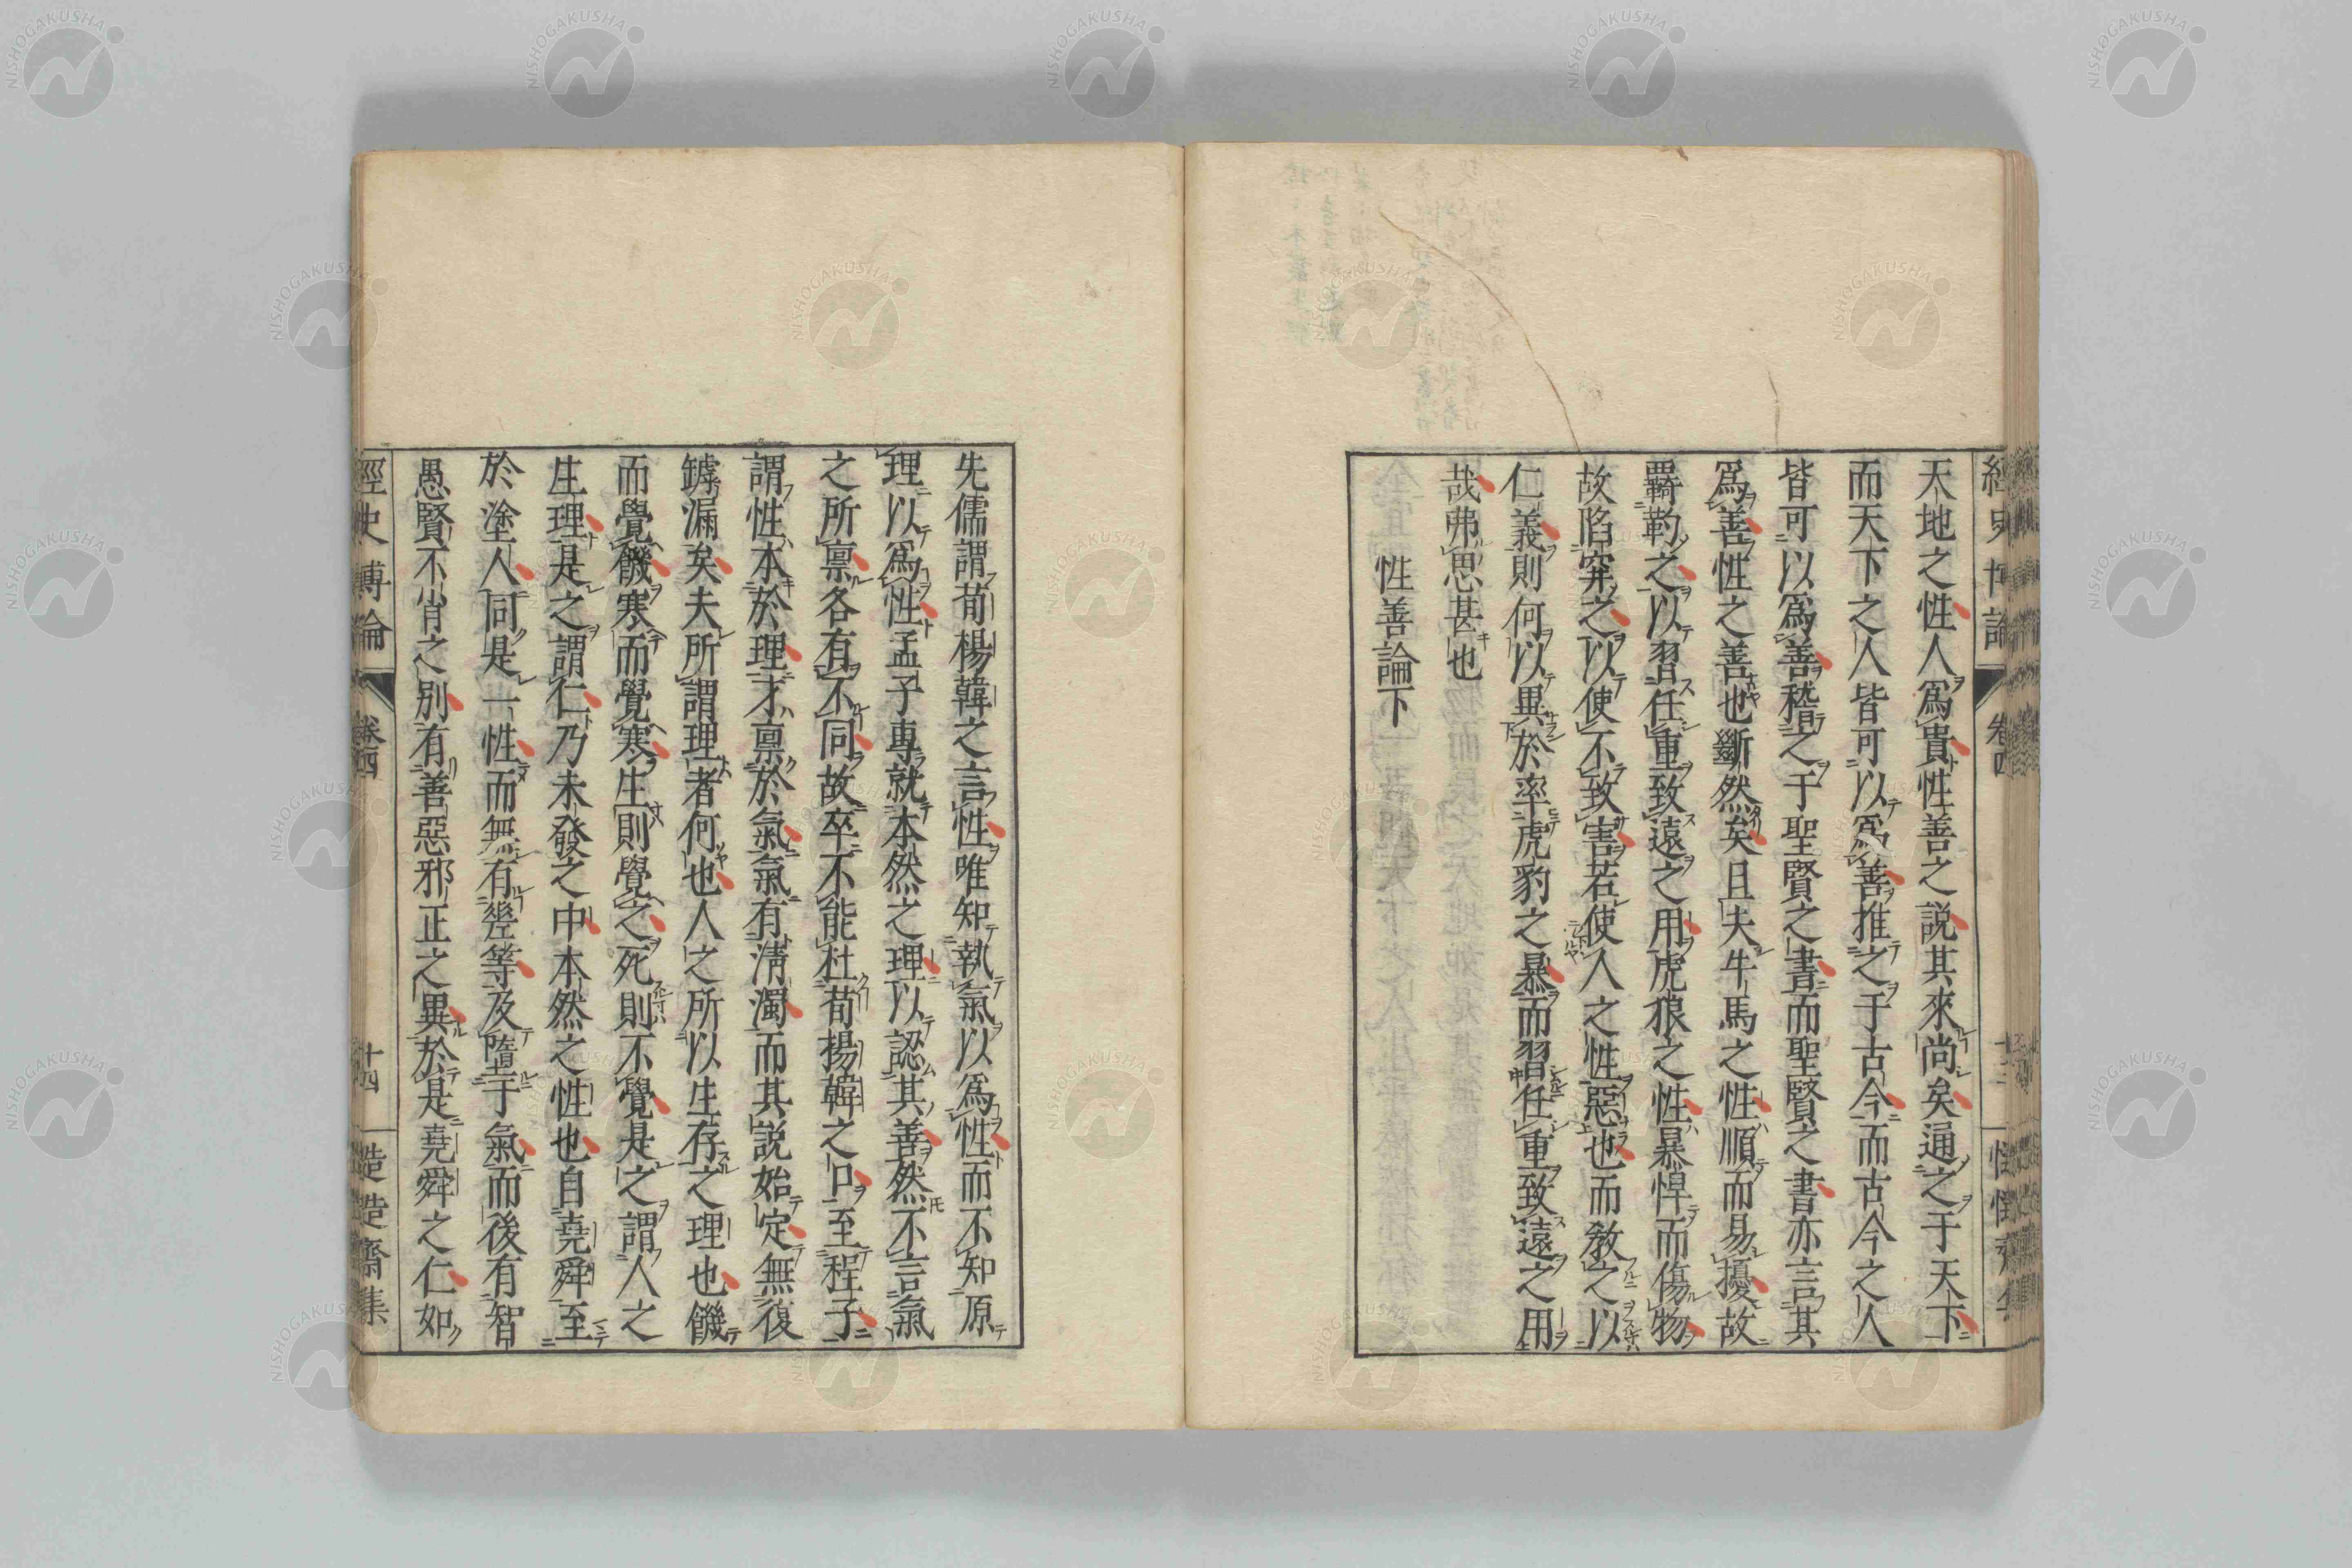 天地之性人爲貴性善之説其來尚矣通之于天下
而天下之人皆可以爲善推之于古今而古今之人
皆可以爲善稽之于聖賢之書而聖賢之書亦言其
爲善性之善也斷然矣且夫牛馬之性順而易擾故
覊靮之以習任重致遠之用虎狼之性暴悍而傷物
故陷穽之以使不致害若使人之性惡也而敎之以
仁義則何以異於率虎豹之暴而習任重致遠之用
哉弗思甚也
性善論下
先儒謂荀楊韓之言性唯知執氣以爲性而不知原
理以爲性孟子專就本然之理以認其善然不言氣
之所禀各有不同故卒不能杜荀揚韓之口至程子
謂性本於理才禀於氣氣有淸濁而其説始定無復
罅漏矣夫所謂理者何也人之所以生存之理也饑
而覺饑寒而覺寒生則覺之死則不覺是之謂人之
生理是之謂仁乃未發之中本然之性也自堯舜至
於塗人同是一性而無有差等及墮于氣而後有智
愚賢不肖之別有善惡邪正之異於是堯舜之仁如
經史博論 卷四 十四
NISHOGAKUSHA